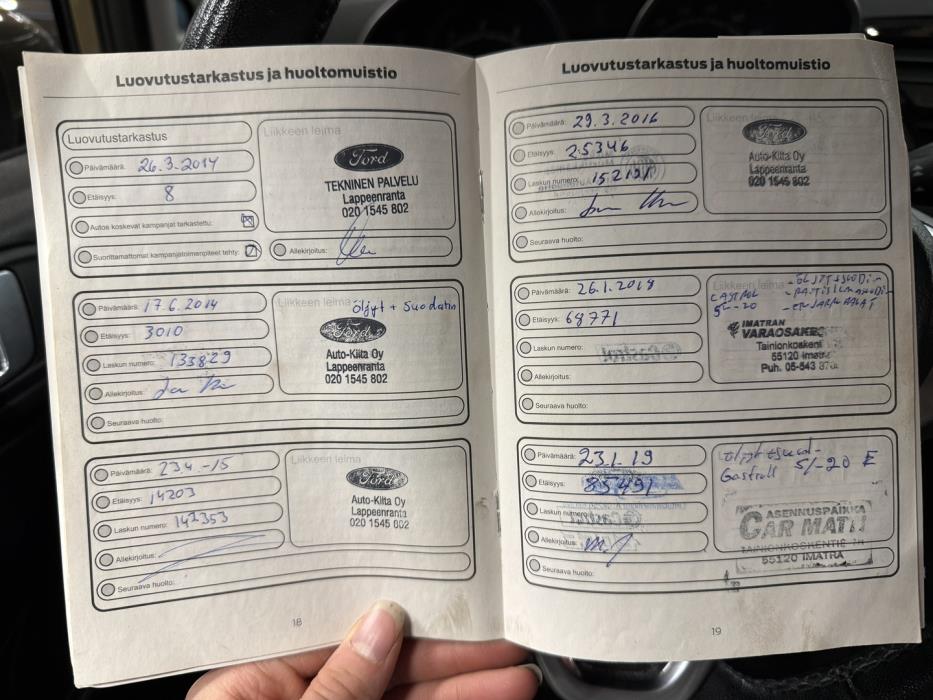 Luovutustarkastus ja huoltomuistio
Luovutustarkastus
Päivämäärä: 26.3.2014
Etäisyys: 8
Autoa koskevat kampanjat tarkastettu:
Suorittamattomat kampanjatoimenpiteet tehty:
Liikkeen leima
Ford
TEKNINEN PALVELU
Lappeenranta
020 1545 802
Allekirjoitus:
Päivämäärä: 17.6.2014
Etäisyys: 3010
Laskun numero: 133829
Allekirjoitus:
Seuraava huolto:
Liikkeen leima öljyt + suodatin
Ford
Auto-Kilta Oy
Lappeenranta
020 1545 802
Päivämäärä: 23.4.-15
Etäisyys: 14203
Laskun numero: 142353
Allekirjoitus:
Seuraava huolto:
Liikkeen leima
Ford
Auto-Kilta Oy
Lappeenranta
020 1545 802
18
Luovutustarkastus ja huoltomuistio
Päivämäärä: 29.3.2016
Etäisyys: 25346
Laskun numero: 152121
Allekirjoitus:
Seuraava huolto:
Liikkeen leima
Ford
Auto-Kilta Oy
Lappeenranta
020 1545 802
Päivämäärä: 26.1.2018
Etäisyys: 68771
Laskun numero:
Allekirjoitus:
Seuraava huolto:
Liikkeen leima
CASTROL
5W-20
IMATRAN
VARAOSAKES
Tainionkoskent
55120 Imatra
Puh. 05-543
Päivämäärä: 23.1.-19
Etäisyys: 85491
Laskun numero:
Allekirjoitus:
Seuraava huolto:
öljyt + suod.
Castroll 5/-20 E
ASENNUSPAIKKA
CAR MATTI
TAINIONKOSKENTIE
55120 IMATRA
19